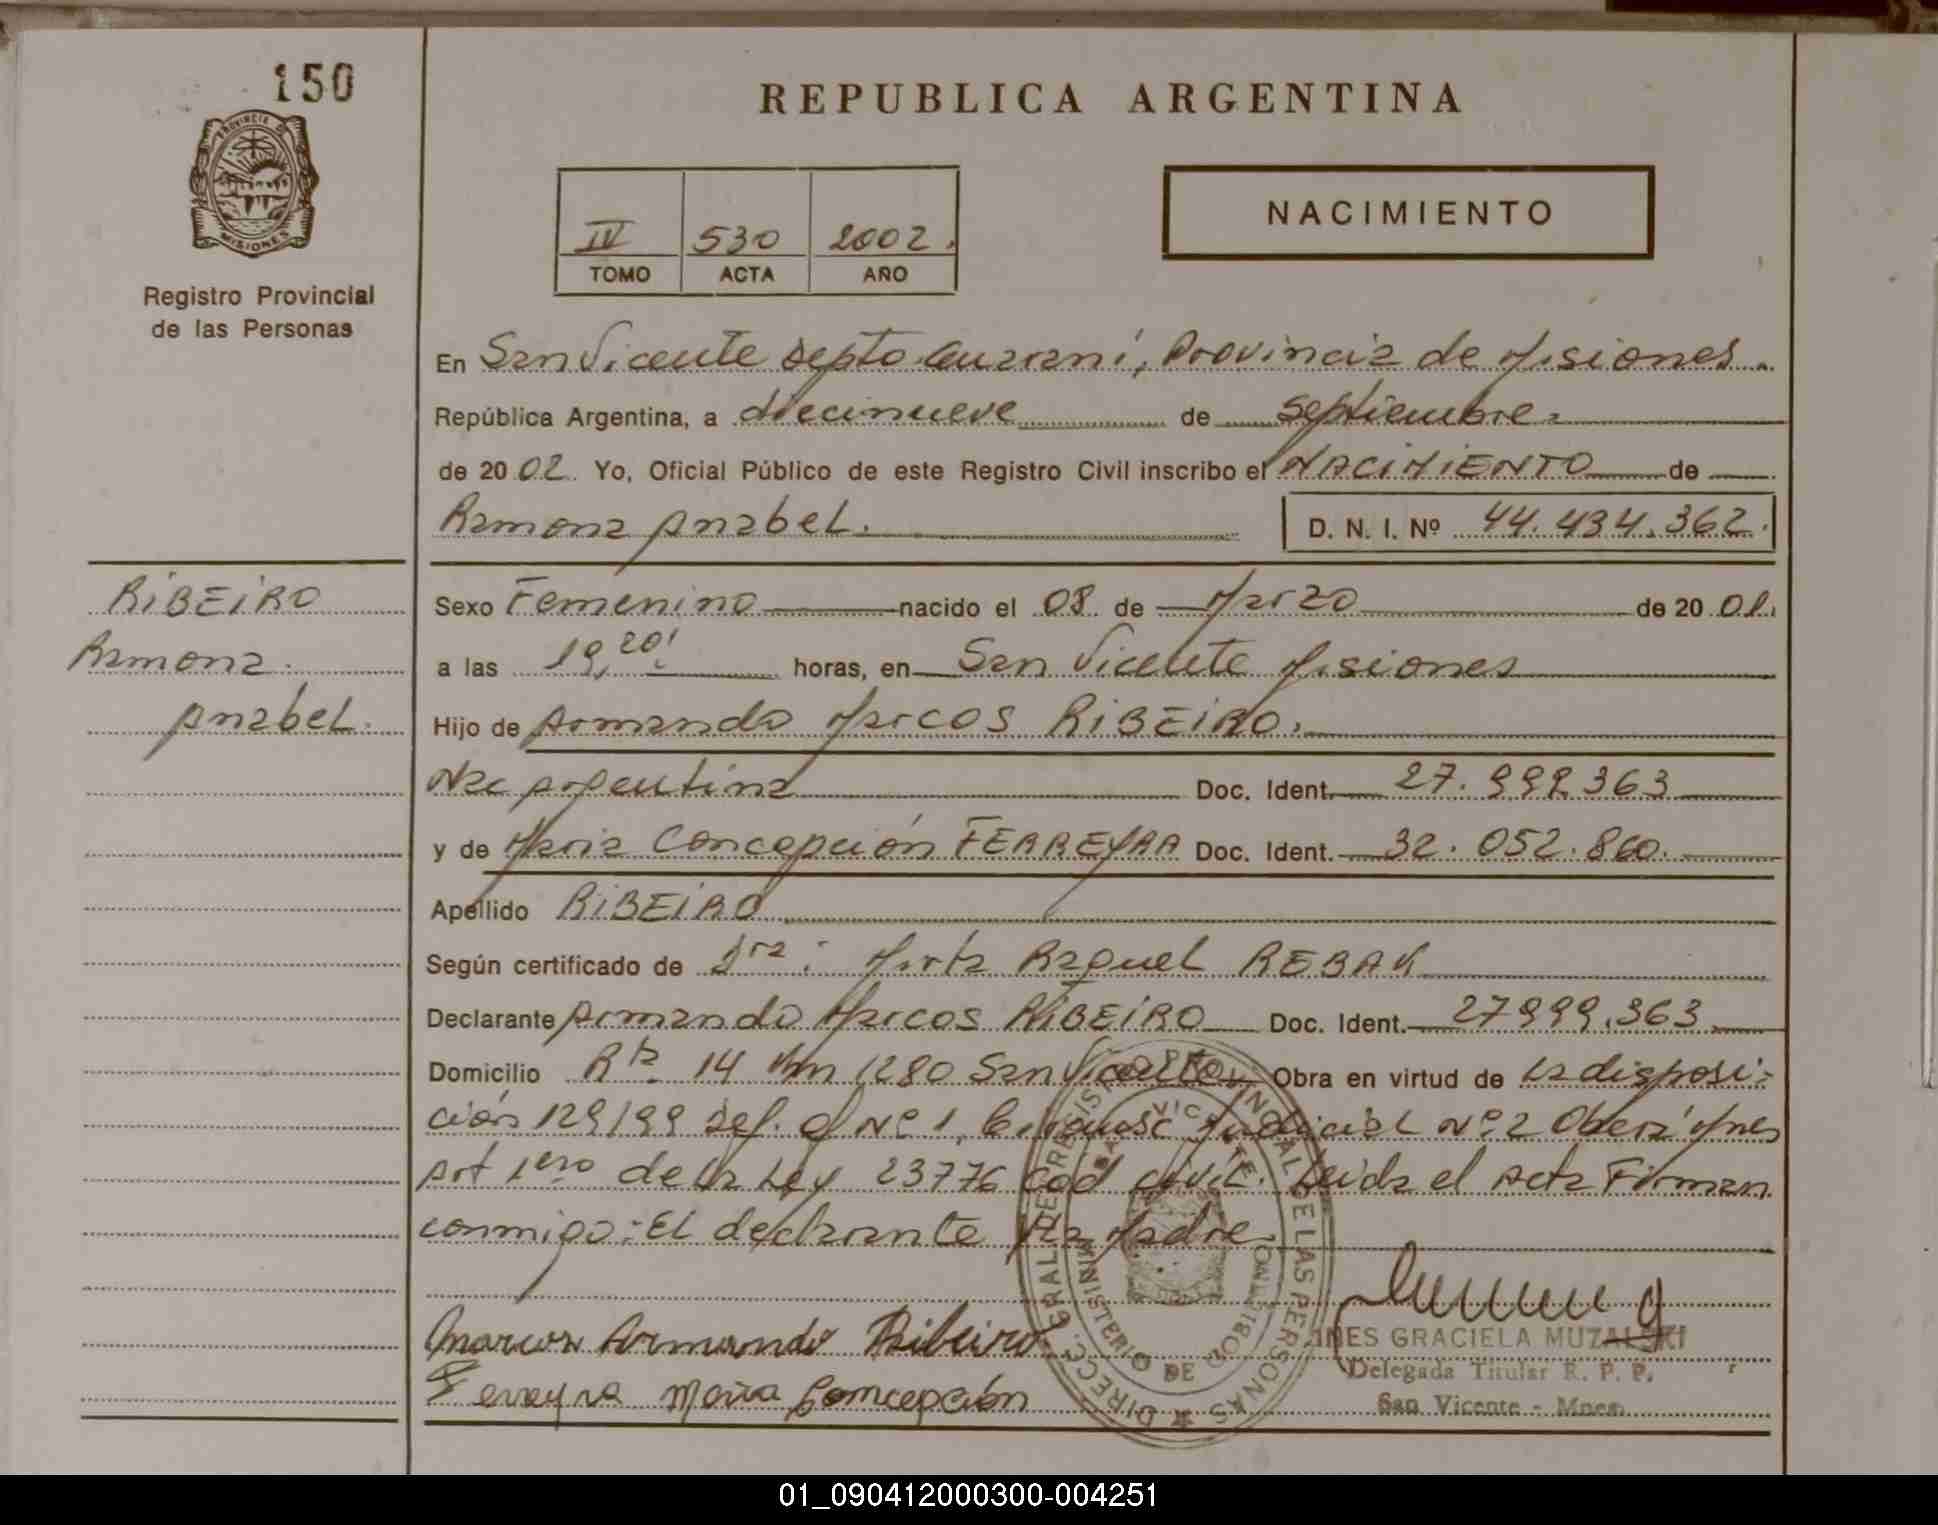 150
PROVINCIA DE
MISIONES
Registro Provincial
de las Personas
REPUBLICA ARGENTINA
IV 530 2002.
TOMO ACTA AÑO
NACIMIENTO
En San Vicente Depto Guarani, Provincia de Misiones.
República Argentina, a diecinueve de septiembre.
de 2002. Yo, Oficial Público de este Registro Civil inscribo el NACIMIENTO de
Ramona Anabel. D. N. I. Nº 44.434.362.
RIBEIRO
Ramona
Anabel.
Sexo Femenino nacido el 08 de Marzo de 2001.
a las 19,20' horas, en San Vicente Misiones
Hijo de Armando Marcos RIBEIRO.
Nac Argentina Doc. Ident. 27.999.363
y de Maria Concepción FERREYRA Doc. Ident. 32.052.860.
Apellido RIBEIRO
Según certificado de Dra: Mirta Raquel REBAK
Declarante Armando Marcos RIBEIRO Doc. Ident. 27999.363
Domicilio Rta. 14 Km 1280 San Vicente. Obra en virtud de la disposi-
ción 129/99 Def. Of Nº 1, Circunsc Judicial Nº 2 Oberá Mnes
Art 1ero de la Ley 23776 Cod civil. Leida el Acta Firman
conmigo: El declarante y la Madre
Marcos Armando Ribeiro
Ferreyra Maria Concepción
DIRECC. GRAL DE REGISTRO PROVINCIAL DE LAS PERSONAS
SAN VICENTE
MINISTERIO DE GOBIERNO
INES GRACIELA MUZALSKI
Delegada Titular R. P. P.
San Vicente - Mnes.
01_090412000300-004251